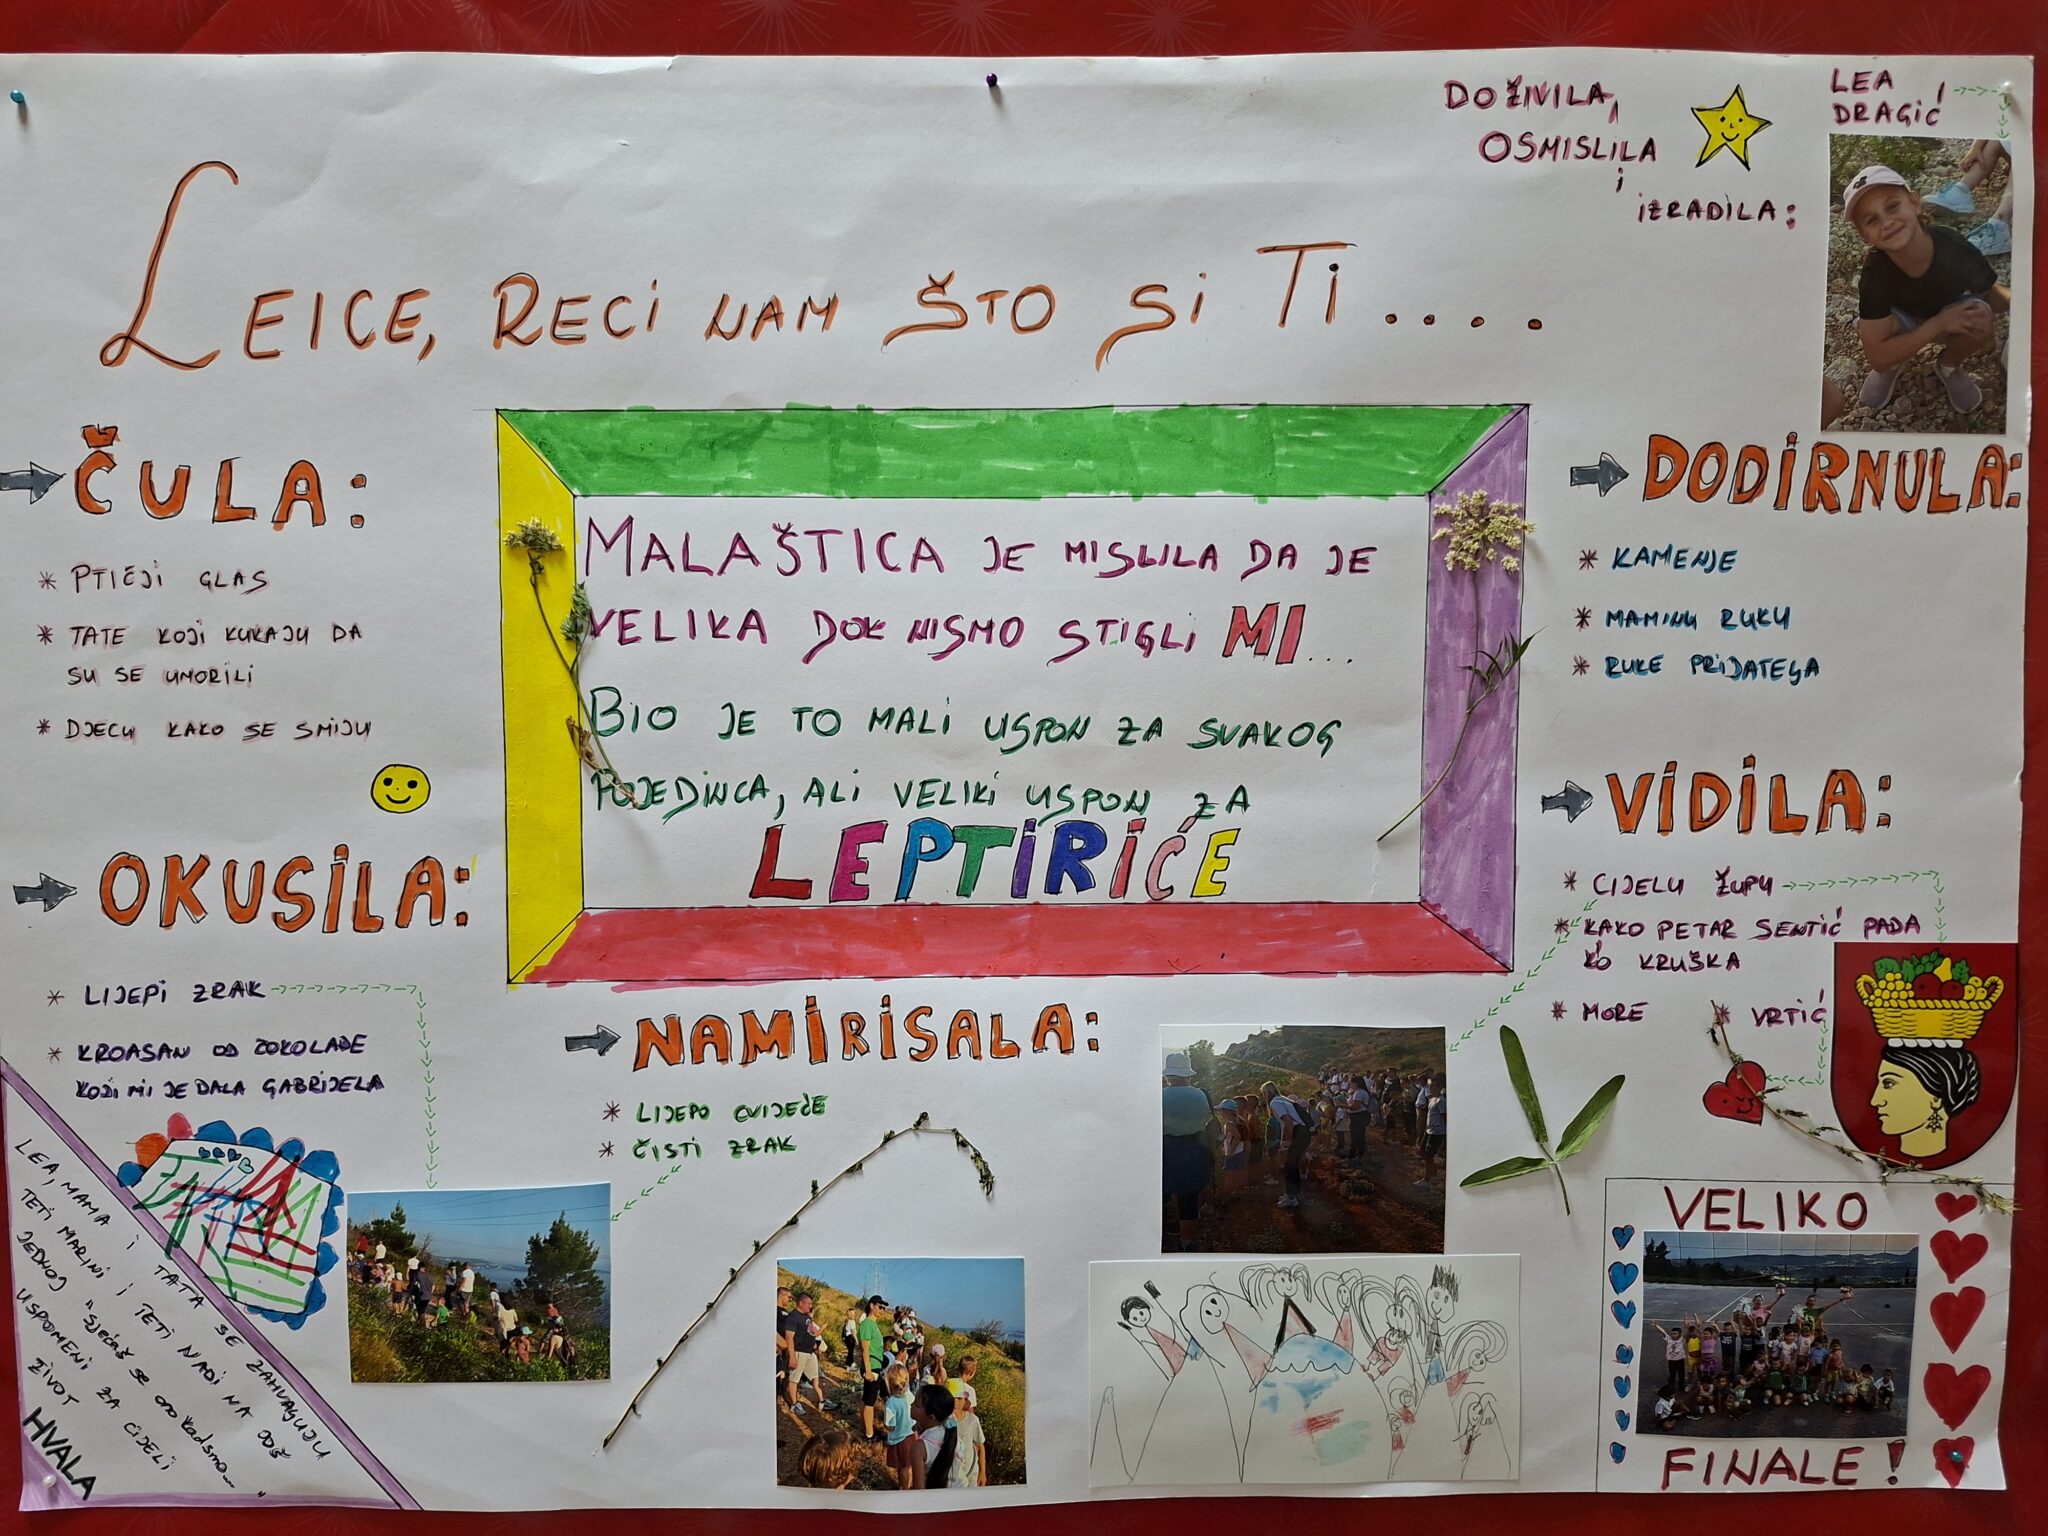 DOŽIVILA,
OSMISLILA
i
IZRADILA:
LEA
DRAGIĆ
LEICE, RECI NAM ŠTO SI TI....
ČULA:
* PTIČJI GLAS
* TATE KOJI KUKAJU DA
SU SE UMORILI
* DJECU KAKO SE SMIJU
OKUSILA:
* LIJEPI ZRAK
* KROASAN OD ČOKOLADE
KOJI MI JE DALA GABRIJELA
MALAŠTICA JE MISLILA DA JE
VELIKA DOK NISMO STIGLI MI...
BIO JE TO MALI USPON ZA SVAKOG
POJEDINCA, ALI VELIKI USPON ZA
LEPTIRIĆE
NAMIRISALA:
* LIJEPO CVIJEĆE
* ČISTI ZRAK
DODIRNULA:
* KAMENJE
* MAMINU RUKU
* RUKE PRIJATELJA
VIDILA:
* CIJELU ŽUPU
* KAKO PETAR SENTIĆ PADA
KO KRUŠKA
* MORE * VRTIĆ
LEA, MAMA i TATA SE ZAHVALJUJU
TETI MARINI i TETI NADI NA JOŠ
JEDNOJ "SJEĆAŠ SE ONO KAD SMO...."
USPOMENI ZA CIJELI
ŽIVOT
HVALA
VELIKO
FINALE!